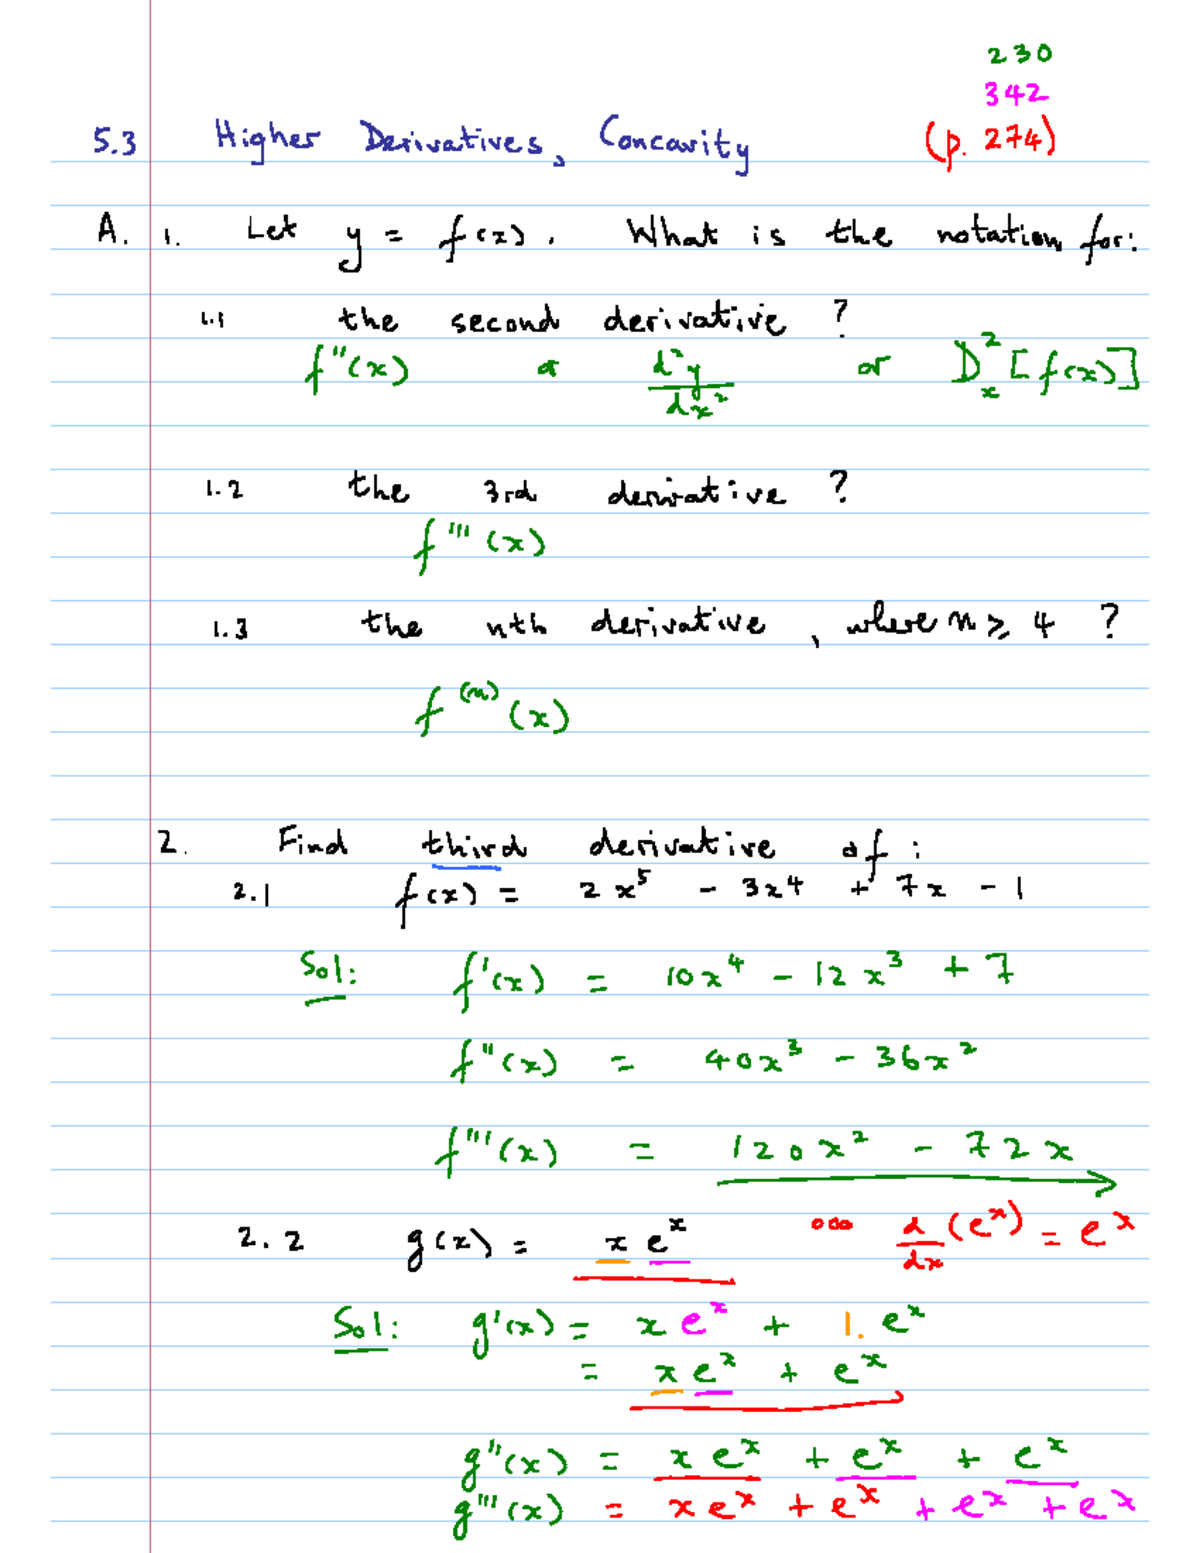 230
342
5.3 Higher Derivatives, Concavity (p. 274)
A. 1. Let y = f(x). What is the notation for:
1.1 the second derivative ?
f''(x) or d²y/dx² or D²ₓ[f(x)]
1.2 the 3rd derivative ?
f'''(x)
1.3 the nth derivative, where n ≥ 4 ?
f⁽ⁿ⁾(x)
2. Find third derivative of :
2.1 f(x) = 2x⁵ - 3x⁴ + 7x - 1
Sol: f'(x) = 10x⁴ - 12x³ + 7
f''(x) = 40x³ - 36x²
f'''(x) = 120x² - 72x
2.2 g(x) = xeˣ ooo d/dx(eˣ) = eˣ
Sol: g'(x) = xeˣ + 1.eˣ
= xeˣ + eˣ
g''(x) = xeˣ + eˣ + eˣ
g'''(x) = xeˣ + eˣ + eˣ + eˣ